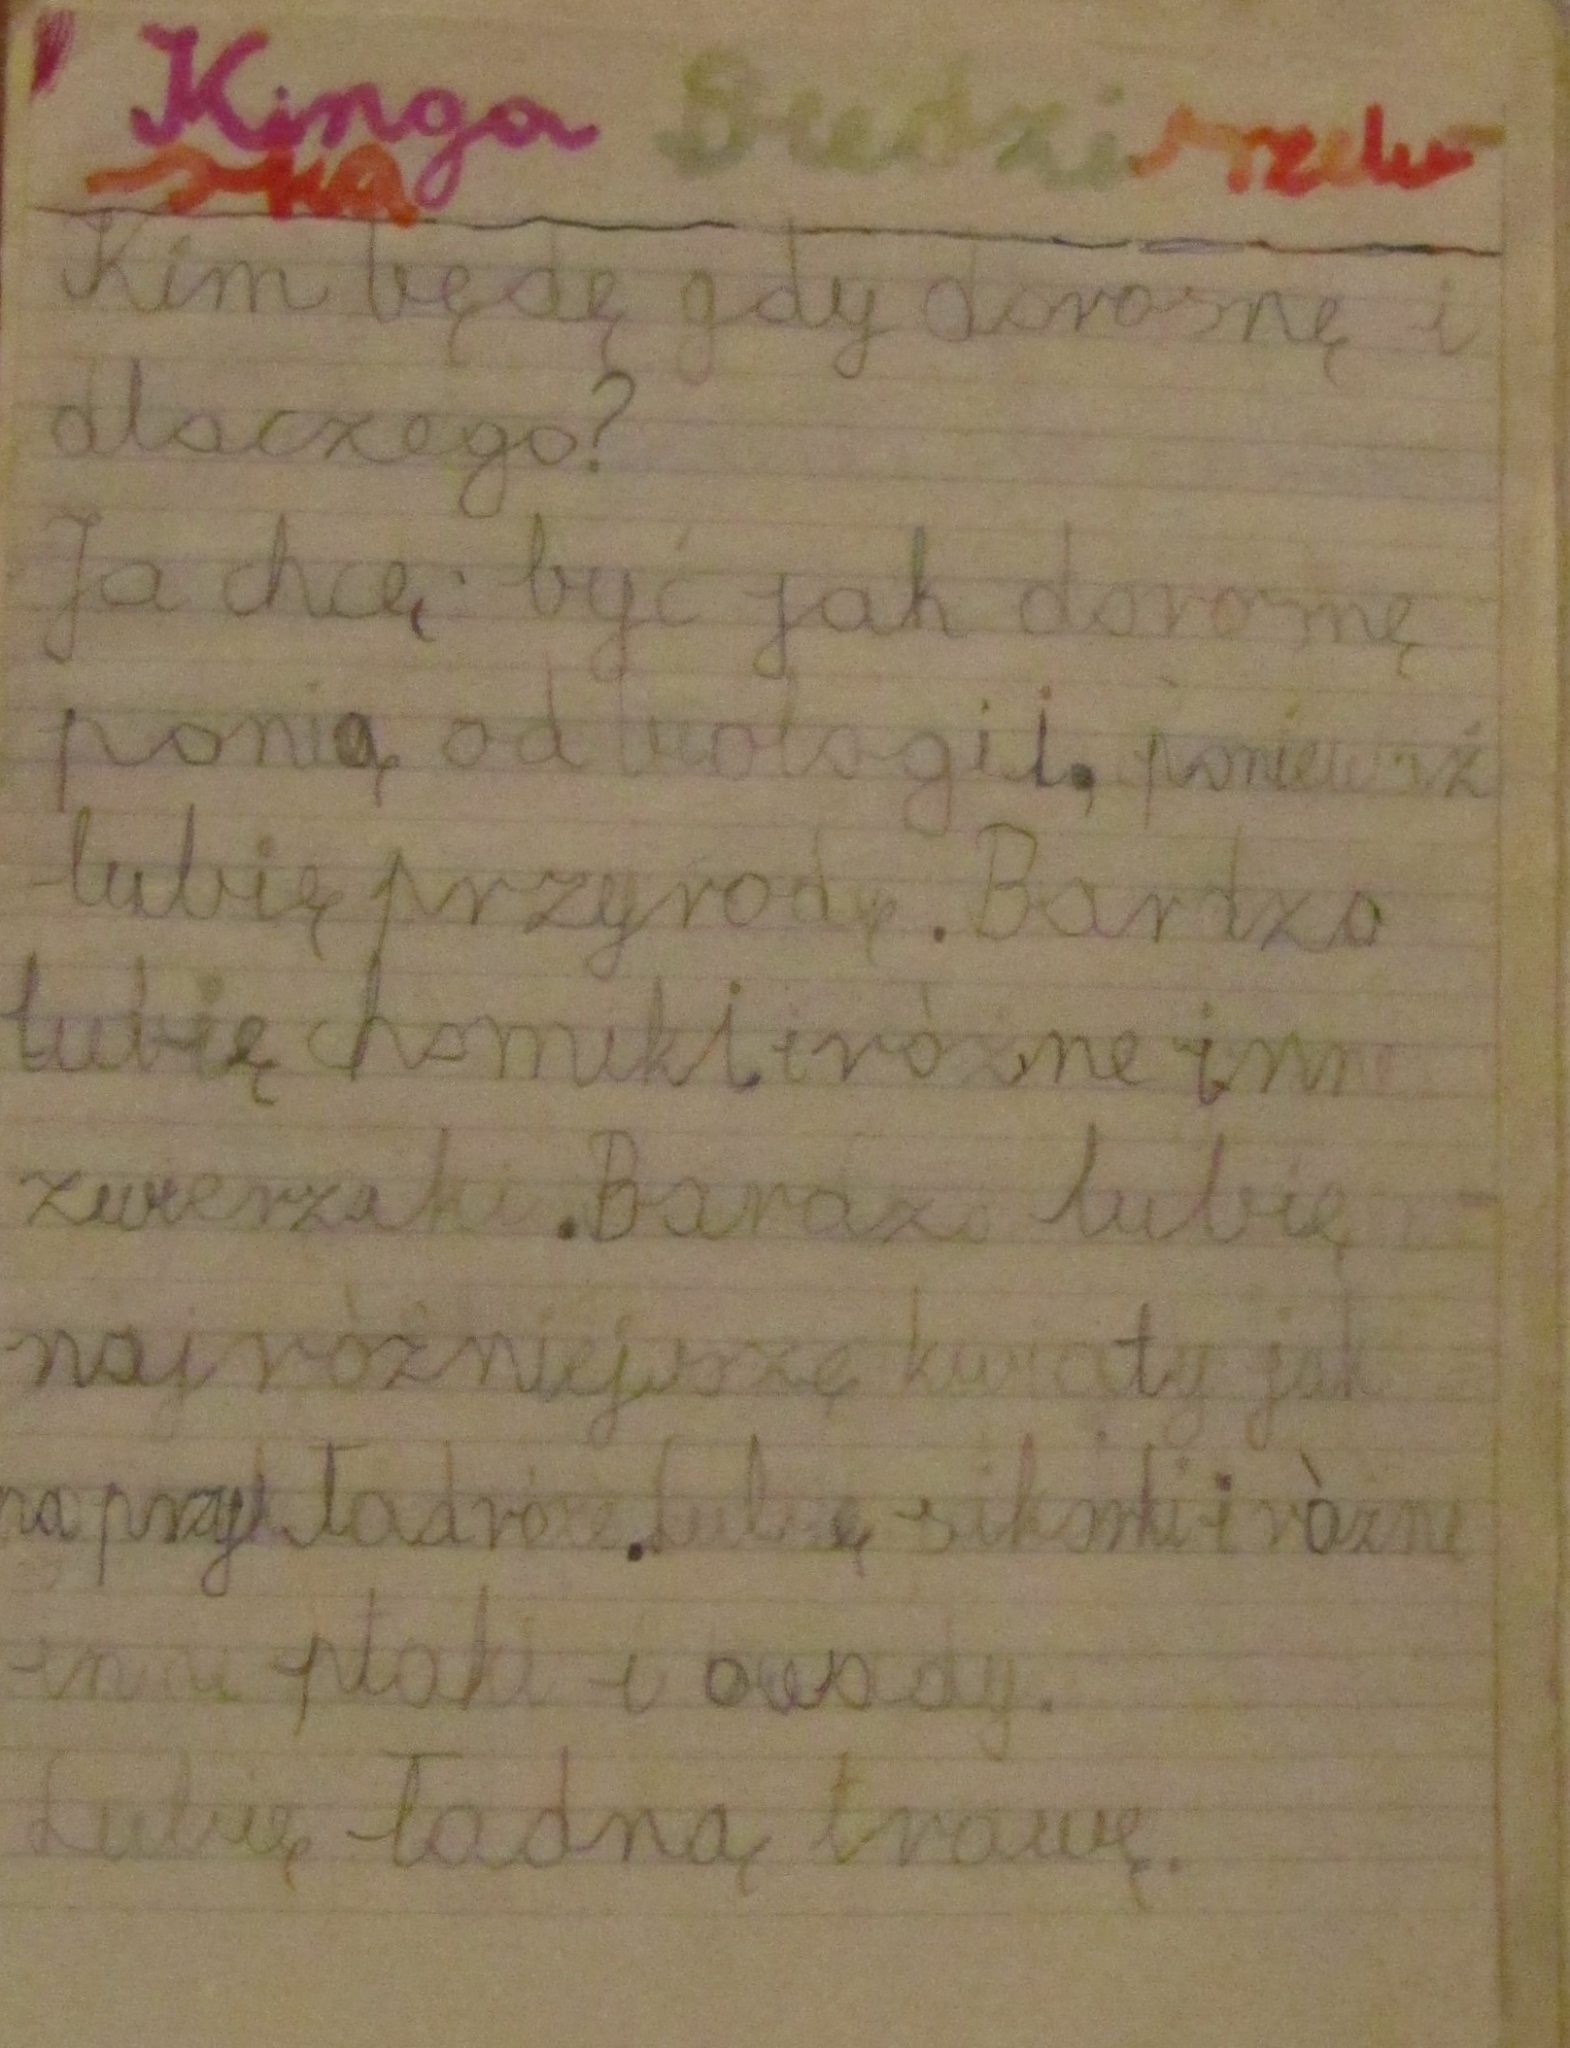 Kinga Sędziszew
ska
Kim będę gdy dorosnę i
dlaczego?
Ja chcę być jak dorosnę
panią od biologii, ponieważ
lubię przyrodę. Bardzo
lubię chomiki i różne inne
zwierzaki. Bardzo lubię
najróżniejszę kwiaty jak
na przykład róże. Lubię sikorki i różne
inne ptaki i owady.
Lubię ładną trawę.